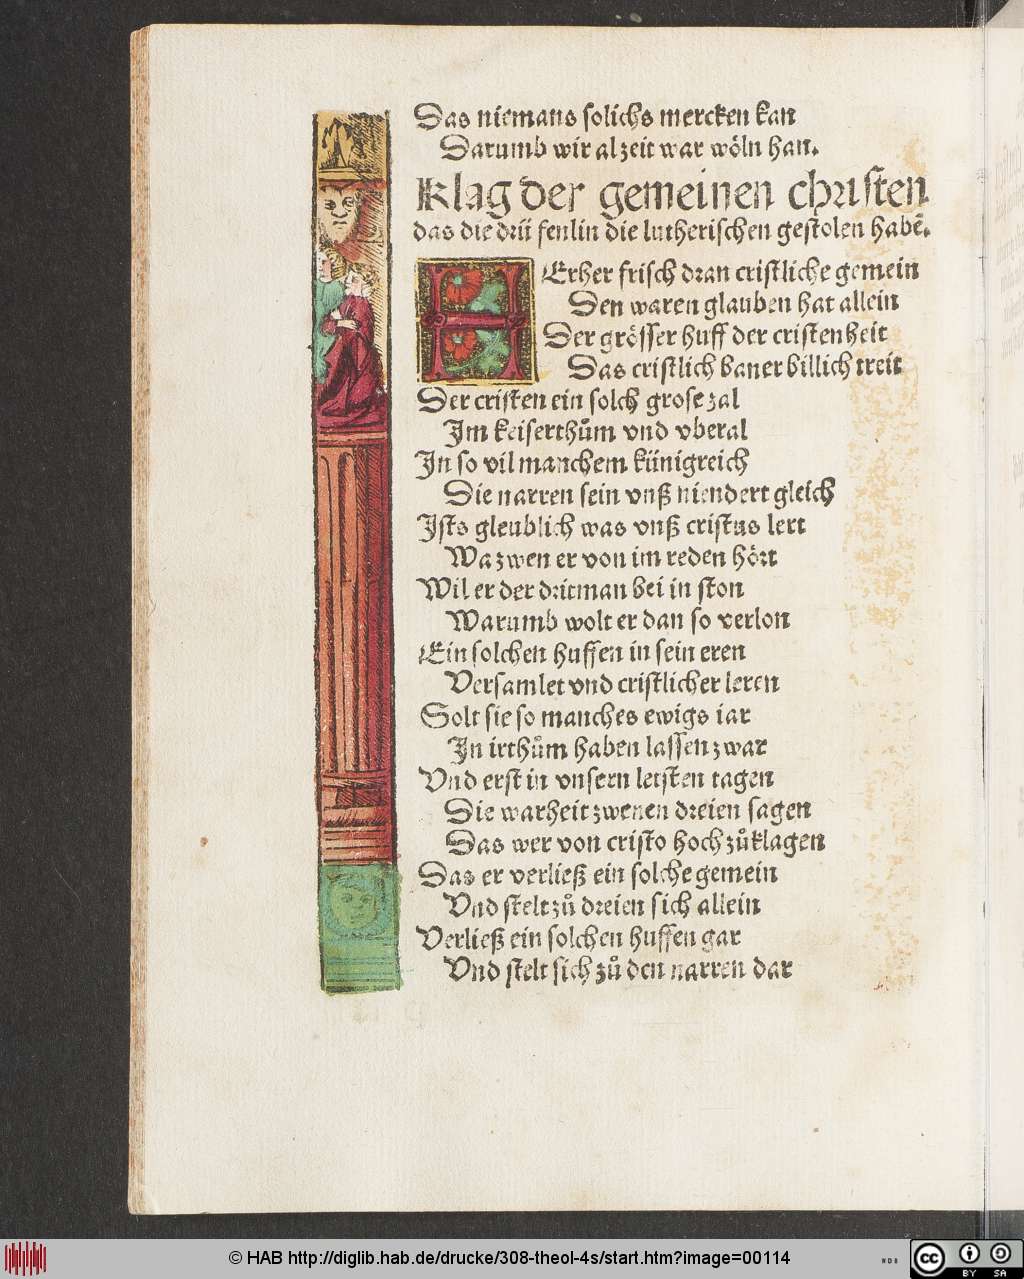 Das niemans solichs mercken kan
Darumb wir alzeit war wöln han.
Klag der gemeinen christen
das die drü fenlin die lutherischen gestolen habē.
HErher frisch dran cristliche gemein
Den waren glauben hat allein
Der grösser huff der cristenheit
Das cristlich baner billich treit
Der cristen ein solch grose zal
Im keiserthům vnd vberal
In so vil manchem künigreich
Die narren sein vnß niendert gleich
Ists gleublich was vnß cristus lert
Wa zwen er von im reden hört
Wil er der dritman bei in ston
Warumb wolt er dan so verlon
Ein solchen huffen in sein eren
Versamlet vnd cristlicher leren
Solt sie so manches ewigs iar
In irthům haben lassen zwar
Vnd erst in vnsern letsten tagen
Die warheit zwenen dreien sagen
Das wer von cristo hoch zůklagen
Das er verließ ein solche gemein
Vnd stelt zů dreien sich allein
Verließ ein solchen huffen gar
Vnd stelt sich zů den narren dar
© HAB http://diglib.hab.de/drucke/308-theol-4s/start.htm?image=00114
cc BY SA